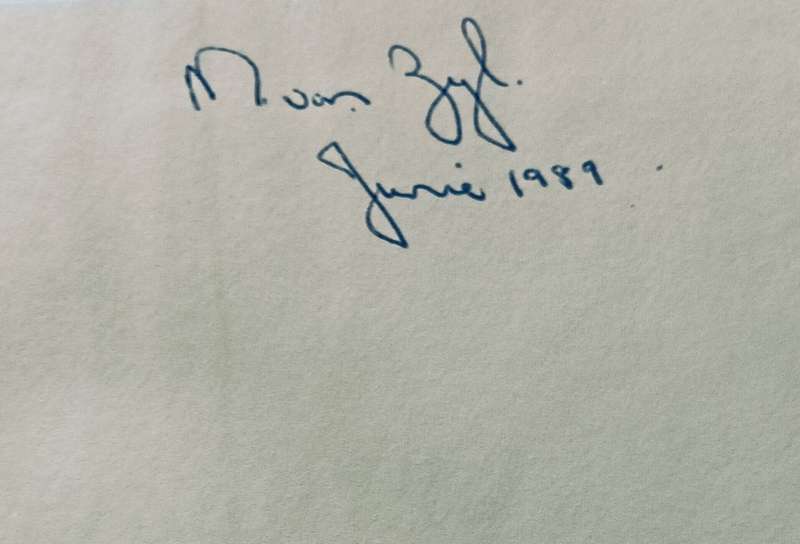 M. van Zyl.
Junie 1989